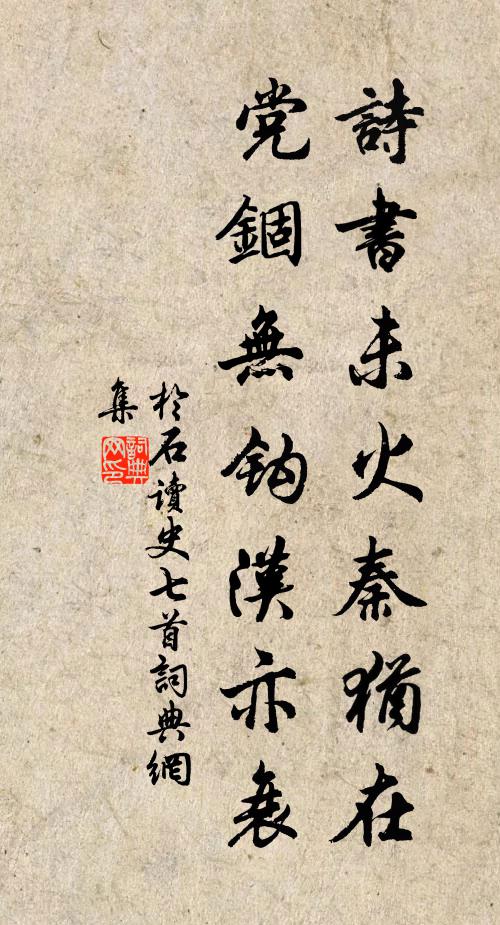 詩書未火秦猶在
党錮無鈎漢亦衰
於石讀史七首詞典網
集
詞典网印